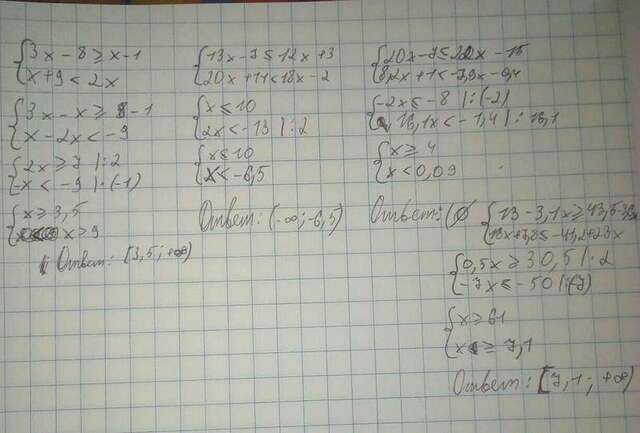 3x - 8 ≥ x - 1
x + 9 < 2x
3x - x ≥ 8 - 1
x - 2x < -9
2x ≥ 7 |:2
-x < -9 |·(-1)
x ≥ 3,5
x > 9
Ответ: [3,5; +∞)
13x - 7 ≤ 12x + 3
20x + 11 < 18x - 2
x ≤ 10
2x < -13 |:2
x ≤ 10
x < -6,5
Ответ: (-∞; -6,5)
20x - 7 ≤ 22x - 15
8,2x + 1 < -7,9x - 0,4
-2x ≤ -8 |:(-2)
16,1x < -1,4 |: 16,1
x ≥ 4
x < 0,09
Ответ: (∅
13 - 3,1x ≥ 43,5 -
0,5x ≥ 30,5 |:2
-7x ≤ -50 |:(-7)
x ≥ 61
x ≥ 7,1
Ответ: [7,1; +∞)